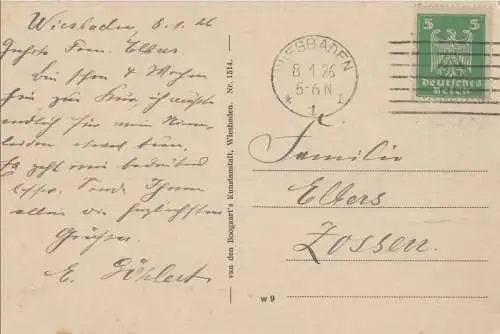 Wiesbaden, 8.1.26
Geehrte Fam. Elbers.
Bin schon 4 Wochen
hier zur Kur, ich mußte
endlich für mein Nieren-
leiden etwas tun.
Es geht mir bedeutend
besser. Sende Ihnen
allen die herzlichsten
Grüße
E. Göhlert
van den Boogaart's Kunstanstalt, Wiesbaden. Nr. 1514.
WIESBADEN
8.1.26
5-6 N
* 1 I
5 5
Deutsches
Reich
Familie
Elbers
Zossen.
w 9